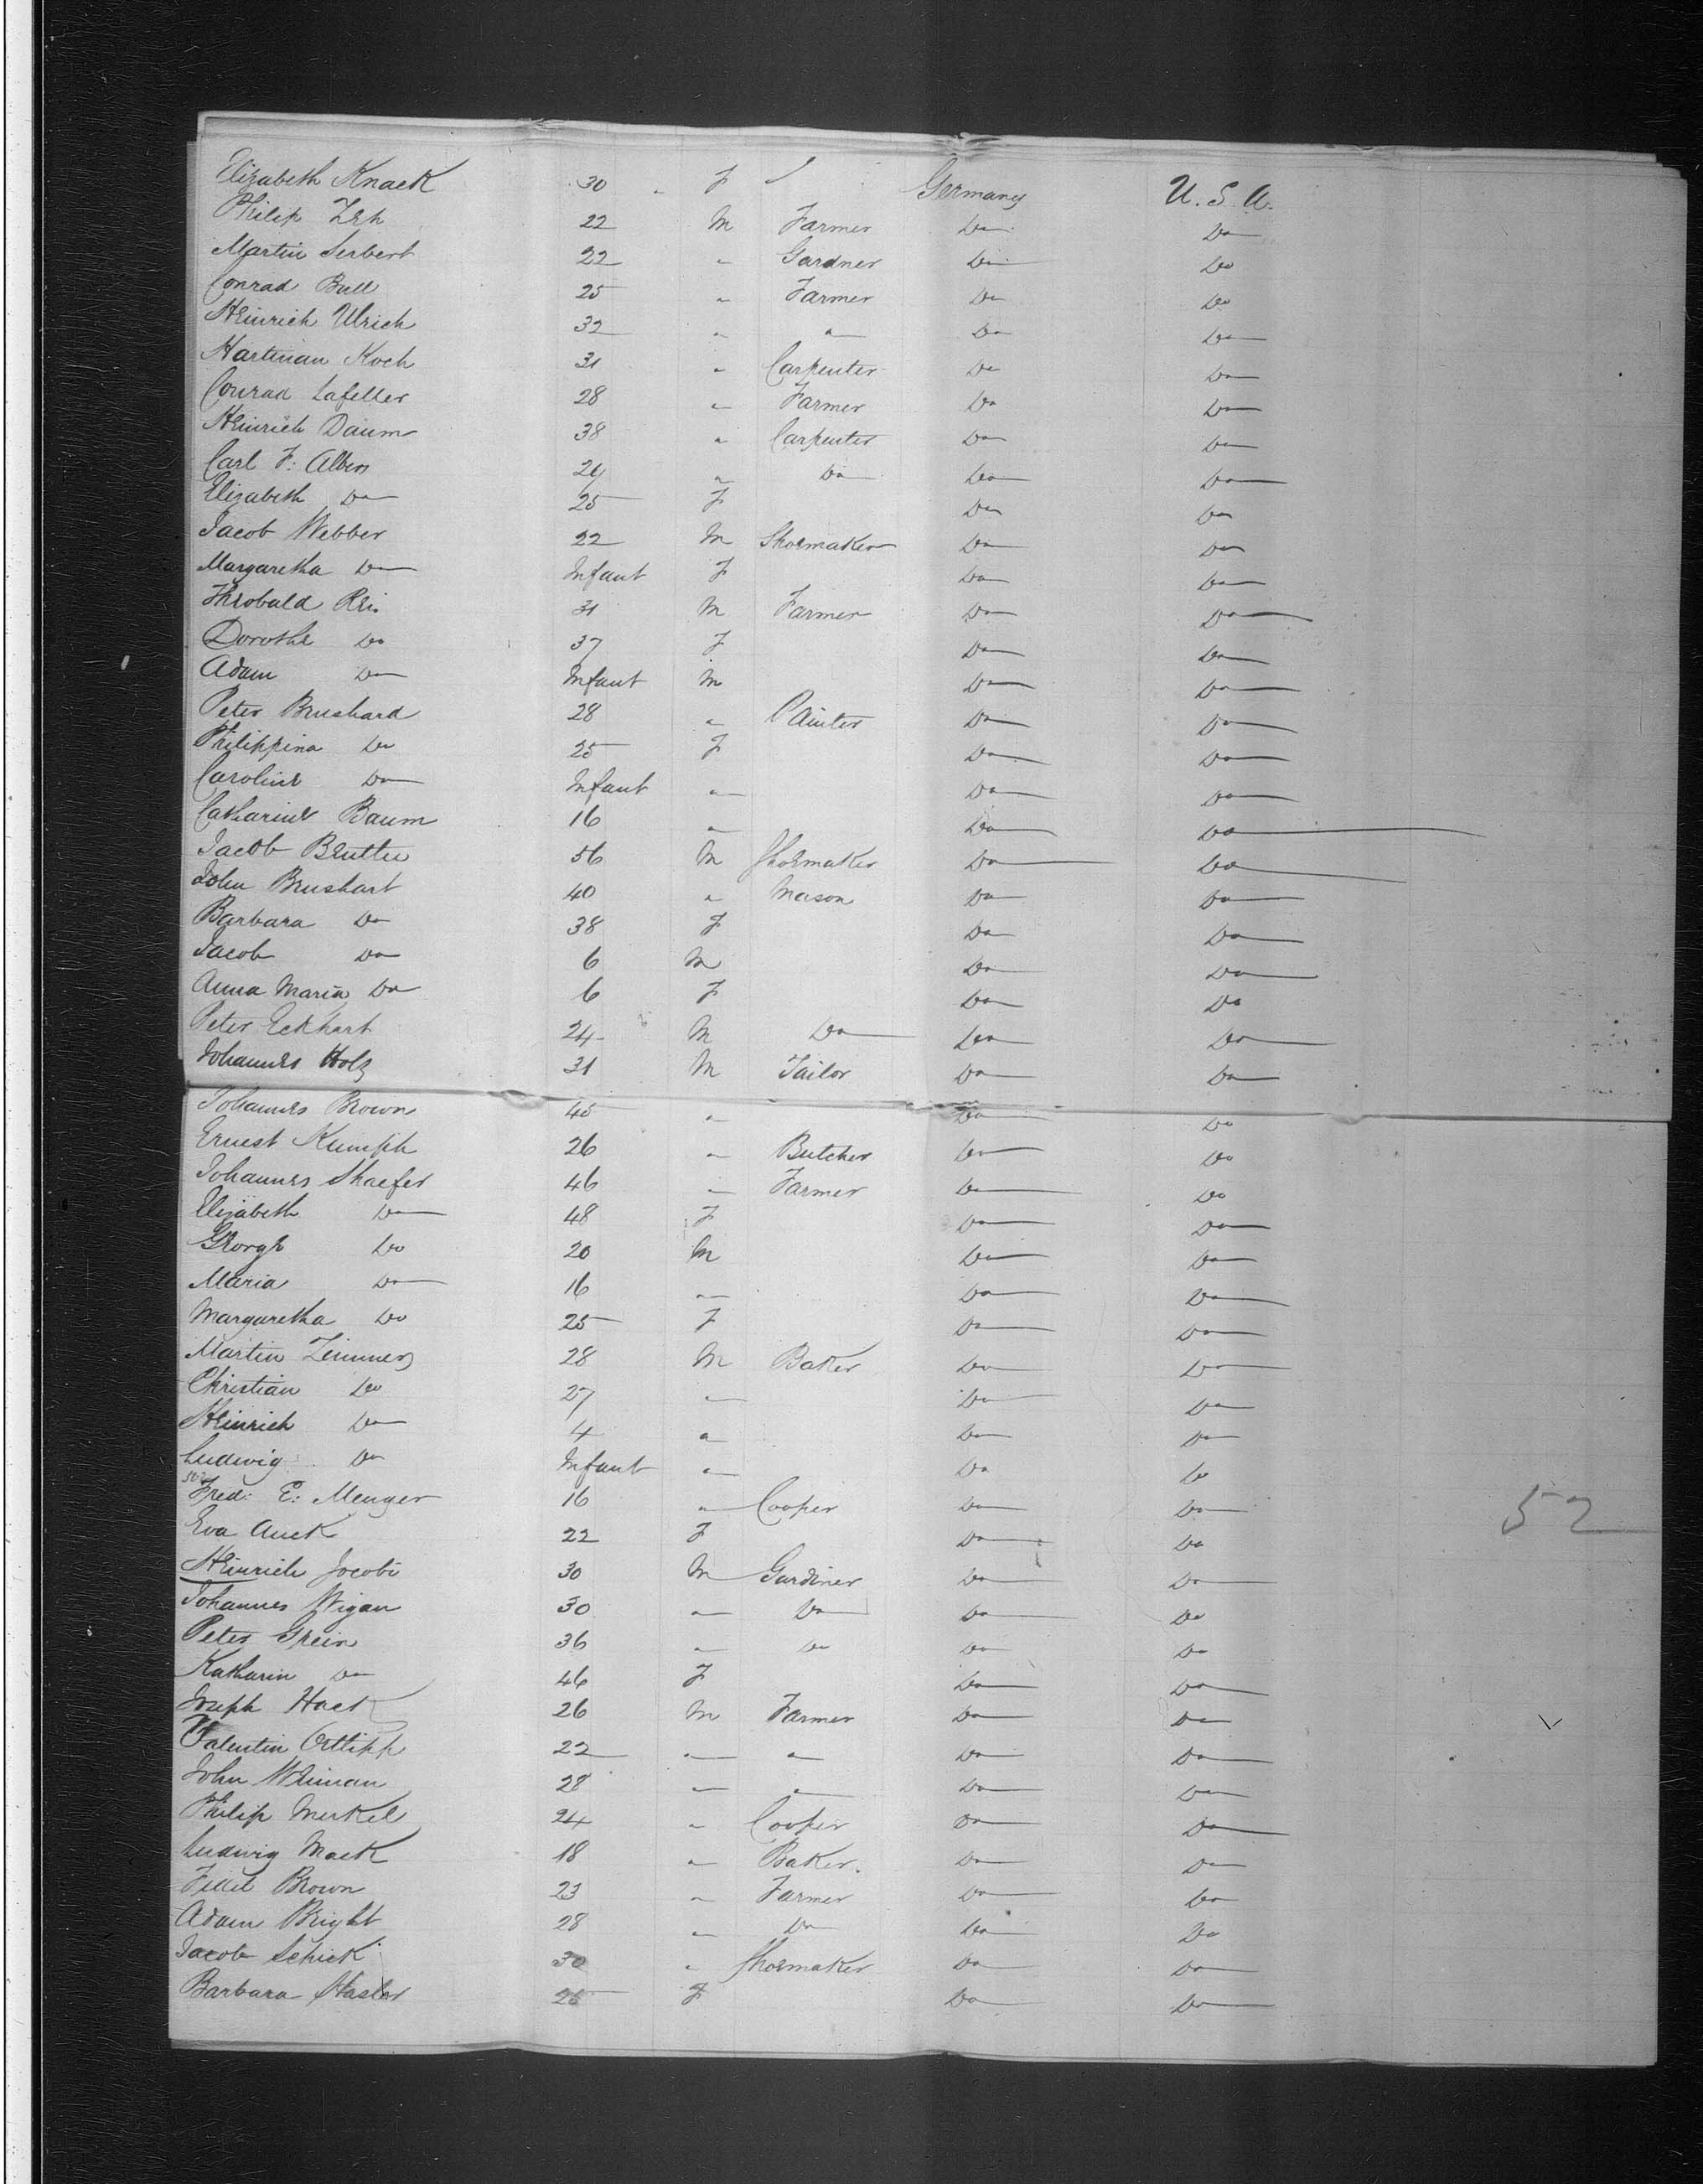 Elizabeth Knack 30 " F Germany U.S.A.
Philip Zeh 22 M Farmer Do Do
Martin Serbert 22 " Gardner Do Do
Conrad Bull 25 " Farmer Do Do
Heinrich Ulrich 32 " " Do Do
Hartman Koch 31 " Carpenter Do Do
Conrad Lafeller 28 " Farmer Do Do
Heinrich Daum 38 " Carpenter Do Do
Carl F: Albers " Do Do Do
Elizabeth Do 25 F Do Do
Jacob Webber 22 M Shoemaker Do Do
Margaretha Do Infant F Do Do
Theobald Rei 31 M Farmer Do Do
Dorothe Do 37 F Do Do
Adam Do Infant M Do Do
Peter Brushard 28 " Painter Do Do
Philippina Do 25 F Do Do
Caroline Do Infant " Do Do
Catharine Baum 16 " Do Do
Jacob 56 M Shoemaker Do Do
John Brushart 40 " Mason Do Do
Barbara Do 38 F Do Do
Jacob Do 6 M Do Do
Anna Maria Do 6 F Do Do
Peter Eckhart 24 M Do Do Do
Johannes Holz 31 M Tailor Do Do
Johannes Brown 45 " Do Do
Ernest Kumph 26 " Butcher Do Do
Johannes Shaefer 46 " Farmer Do Do
Elizabeth Do 48 F Do Do
George Do 20 M Do Do
Maria Do 16 " Do Do
Margaretha Do 25 F Do Do
Martin Zimmer 28 M Baker Do Do
Christian Do 27 " Do Do
Heinrich Do 4 " Do Do
Ludwig Do Infant " Do Do
Fred: E: Menger 16 " Cooper Do Do
52
Eva Auck 22 F Do Do
Heinrich Jocobi 30 M Gardiner Do Do
Johannes Wigan 30 " Do Do Do
Peter Grein 36 " Do Do Do
Katharin Do 46 F Do Do
Joseph Hack 26 M Farmer Do Do
Valentin Ottlipp 22 " " Do Do
John Weiman 28 " " Do Do
Philip Merkel 24 " Cooper Do Do
Ludwig Mack 18 " Baker. Do Do
Fidel Brown 23 " Farmer Do Do
Adam Bright 28 " Do Do Do
Jacob Schick 30 " Shoemaker Do Do
Barbara Hasler 25 F Do Do